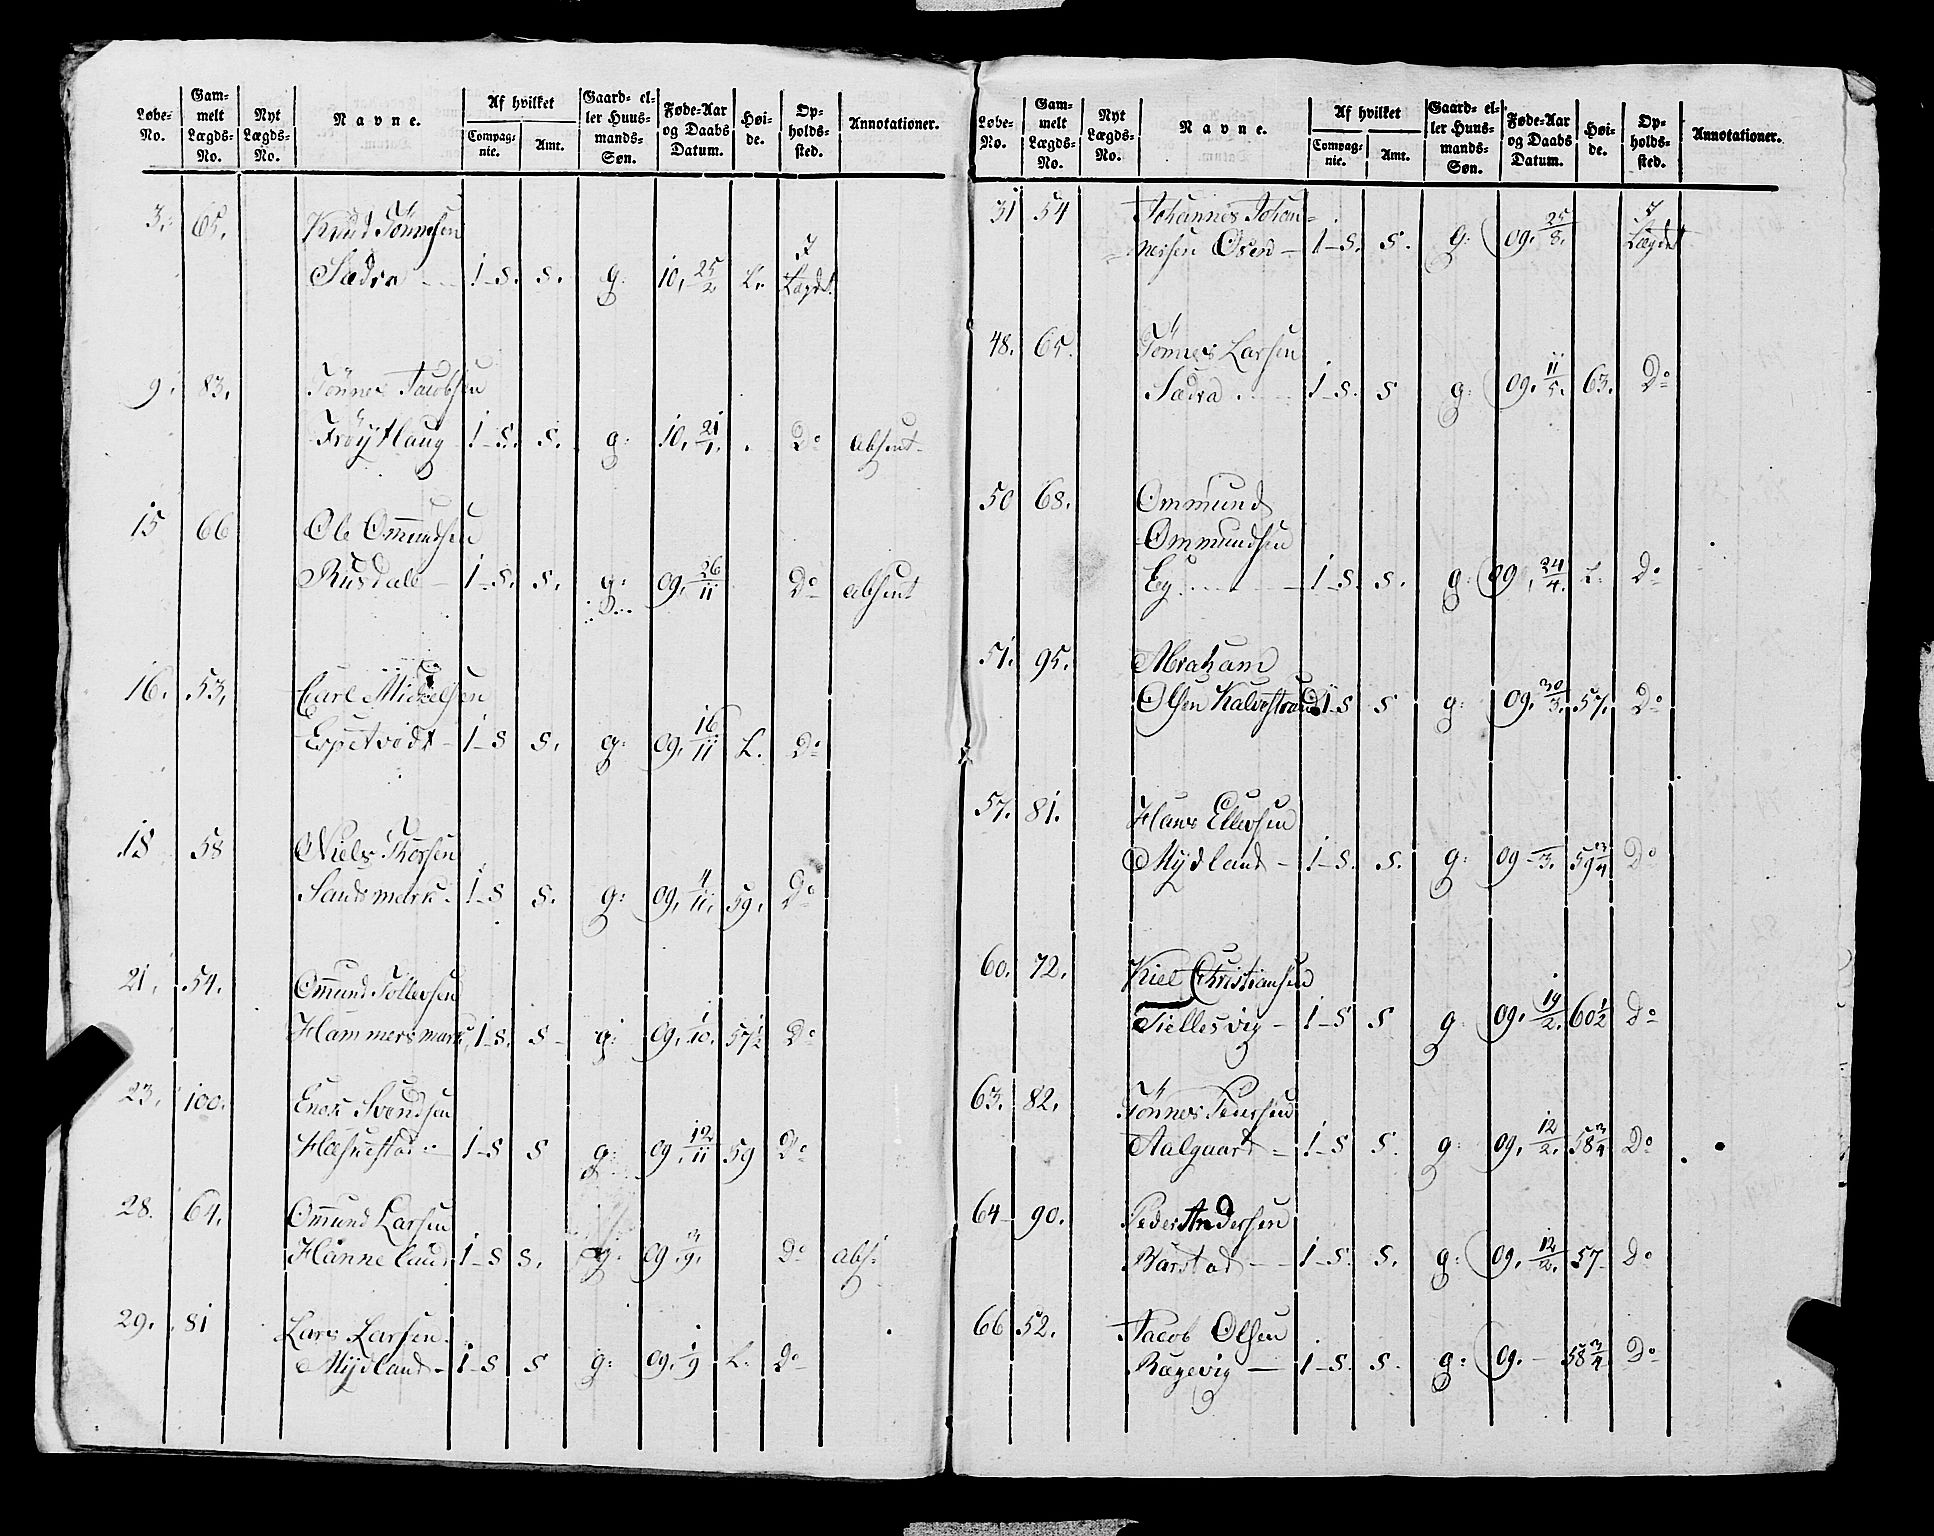 Løbe-No. Gammelt Lægds-No. Nyt Lægds-No. Navne. Af hvilket Compagnie. Amt. Gaard- eller Huusmands-Søn. Føde-Aar og Daabs Datum. Høide. Opholdssted. Annotationer.
3. 65. Knud Tönnesen
Sædra 1-S. S. g: 10, 25/2 L. I Lægdet
9. 83. Tönnes Jacobsen
Fröytlaug 1-S. S. g: 10, 21/1. Do absent
15 66 Ole Omundsen
Rusdale 1-S. S. g: 09, 26/11 Do absent
16. 53, Carl Mickelsen
Espetvedt 1-S S. g: 09, 16/11 L. Do
18 58 Niels Thorsen
Sandsmark 1-S S. g: 09, 4/11. 59. Do
21. 54. Omund Tollevsen
Hammersmark 1-S. S g: 09, 1/10. 57 1/2 Do
23. 100. Enok Svendsen
Hæsnestad 1-S S g: 09, 12/11 59 Do
28. 64. Omund Larsen
Hanneland 1-S S. g: 09 3/9. Do abs:
29. 81 Lars Larsen
Mydland 1-S S g: 09. 1/9 L. Do
Løbe-No. Gammelt Lægds-No. Nyt Lægds-No. Navne. Af hvilket Compagnie. Amt. Gaard- eller Huusmands-Søn. Føde-Aar og Daabs Datum. Høide. Opholdssted. Annotationer.
31 54 Johannes Johan=
nessen 1-S. S. g: 09. 25/8. I Lægdet
48. 65. Tönnes Larsen
Sædra 1-S. S g: 09. 11/5. 63. Do
50 68. Ommund
Ommundsen
Eg 1-S S. g: 09, 24/4. L. Do
51. 95. Abraham
Olsen Kalvestrand 1-S S g: 09. 30/3. 57. Do
57. 81. Hans Ellevsen
Mydland 1-S. S. g: 09 -/3. 59 3/4 Do
60. 72. Kiel Christiansen
Tiellesvig 1-S S g 09. 19/2. 60 1/2 Do
63. 82. Tönnes Pedersen
Aalgaard 1-S S. g: 09. 12/2. 58 3/4 Do
64 90. Peder Andersen
Barstad 1-S. S. g: 09. 12/2. 57 Do
66 52. Jacob Olsen
Rægevig 1-S. S. g: 09. 58 3/4 Do